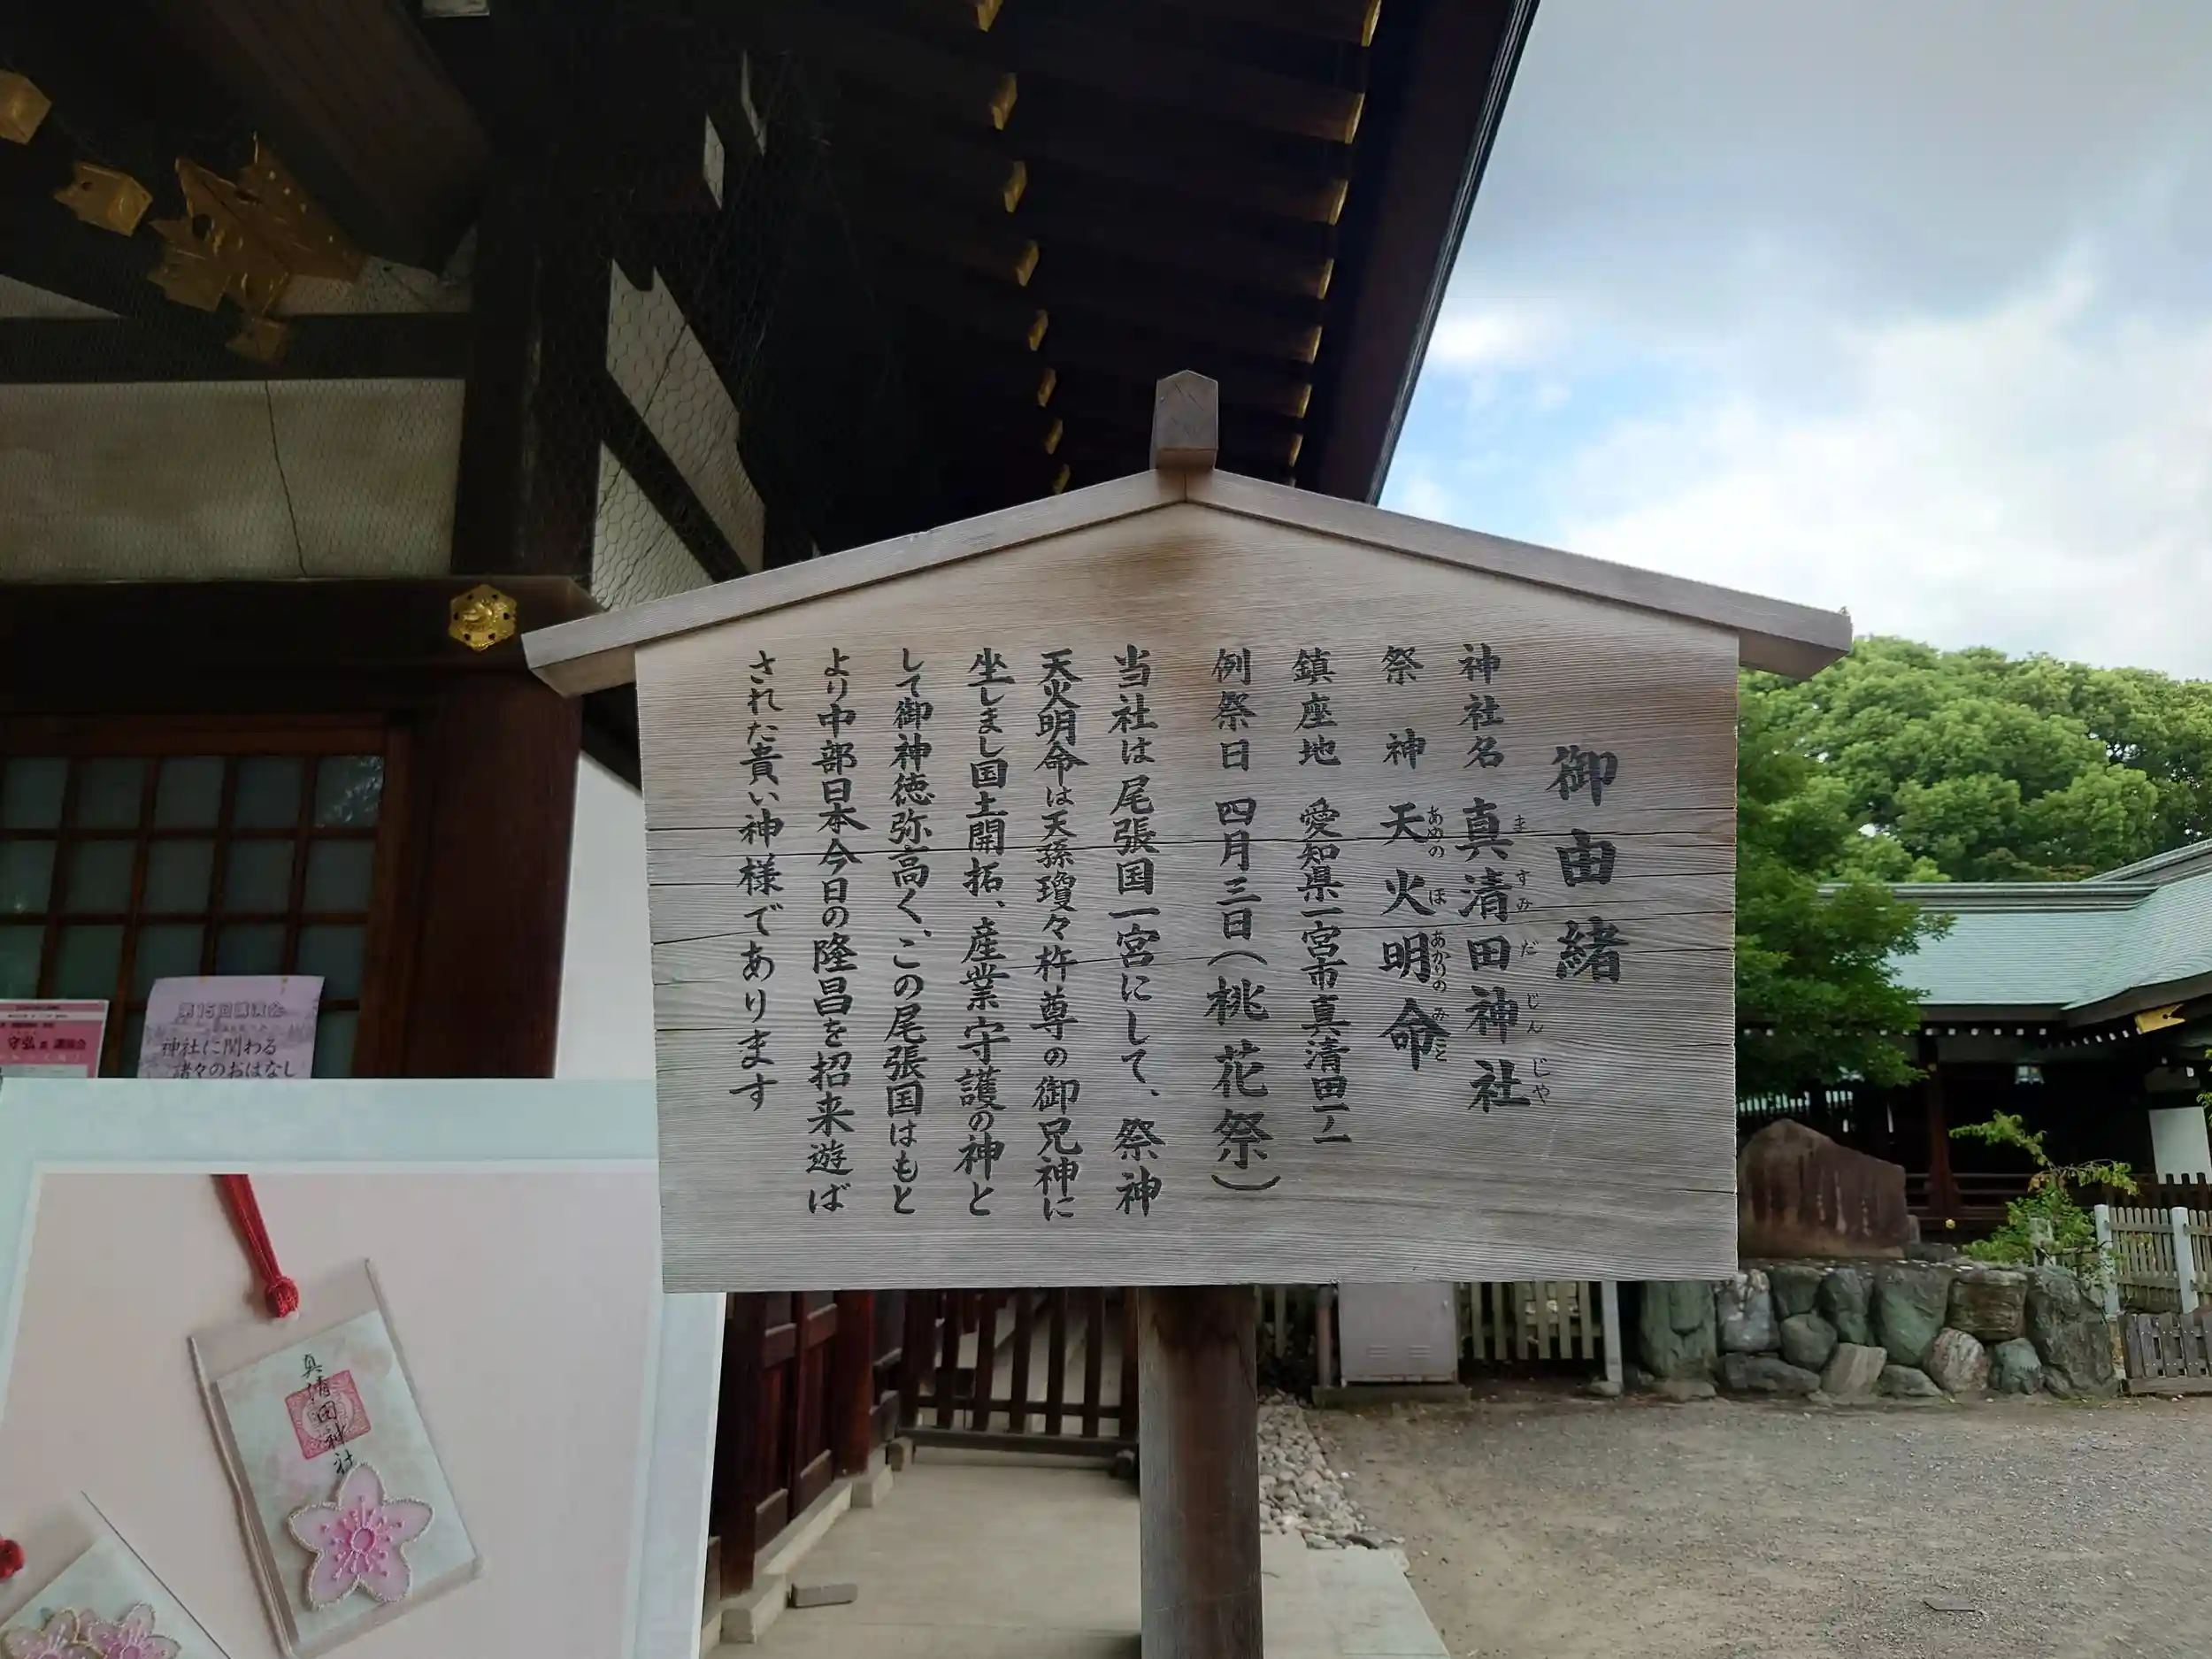 御由緒
神社名 真清田神社
ま すみ だ じん じや
祭神 天火明命
あめの ほ あかりの みこと
鎮座地 愛知県一宮市真清田一ノ一
例祭日 四月三日(桃花祭)
当社は尾張国一宮にして、祭神
天火明命は天孫瓊々杵尊の御兄神に
坐しまし国土開拓、産業守護の神と
して御神徳弥高く、この尾張国はもと
より中部日本今日の隆昌を招来遊ば
された貴い神様であります
第15回講演会
神社に関わる
諸々のおはなし
守弘 氏 講演会
真清田神社